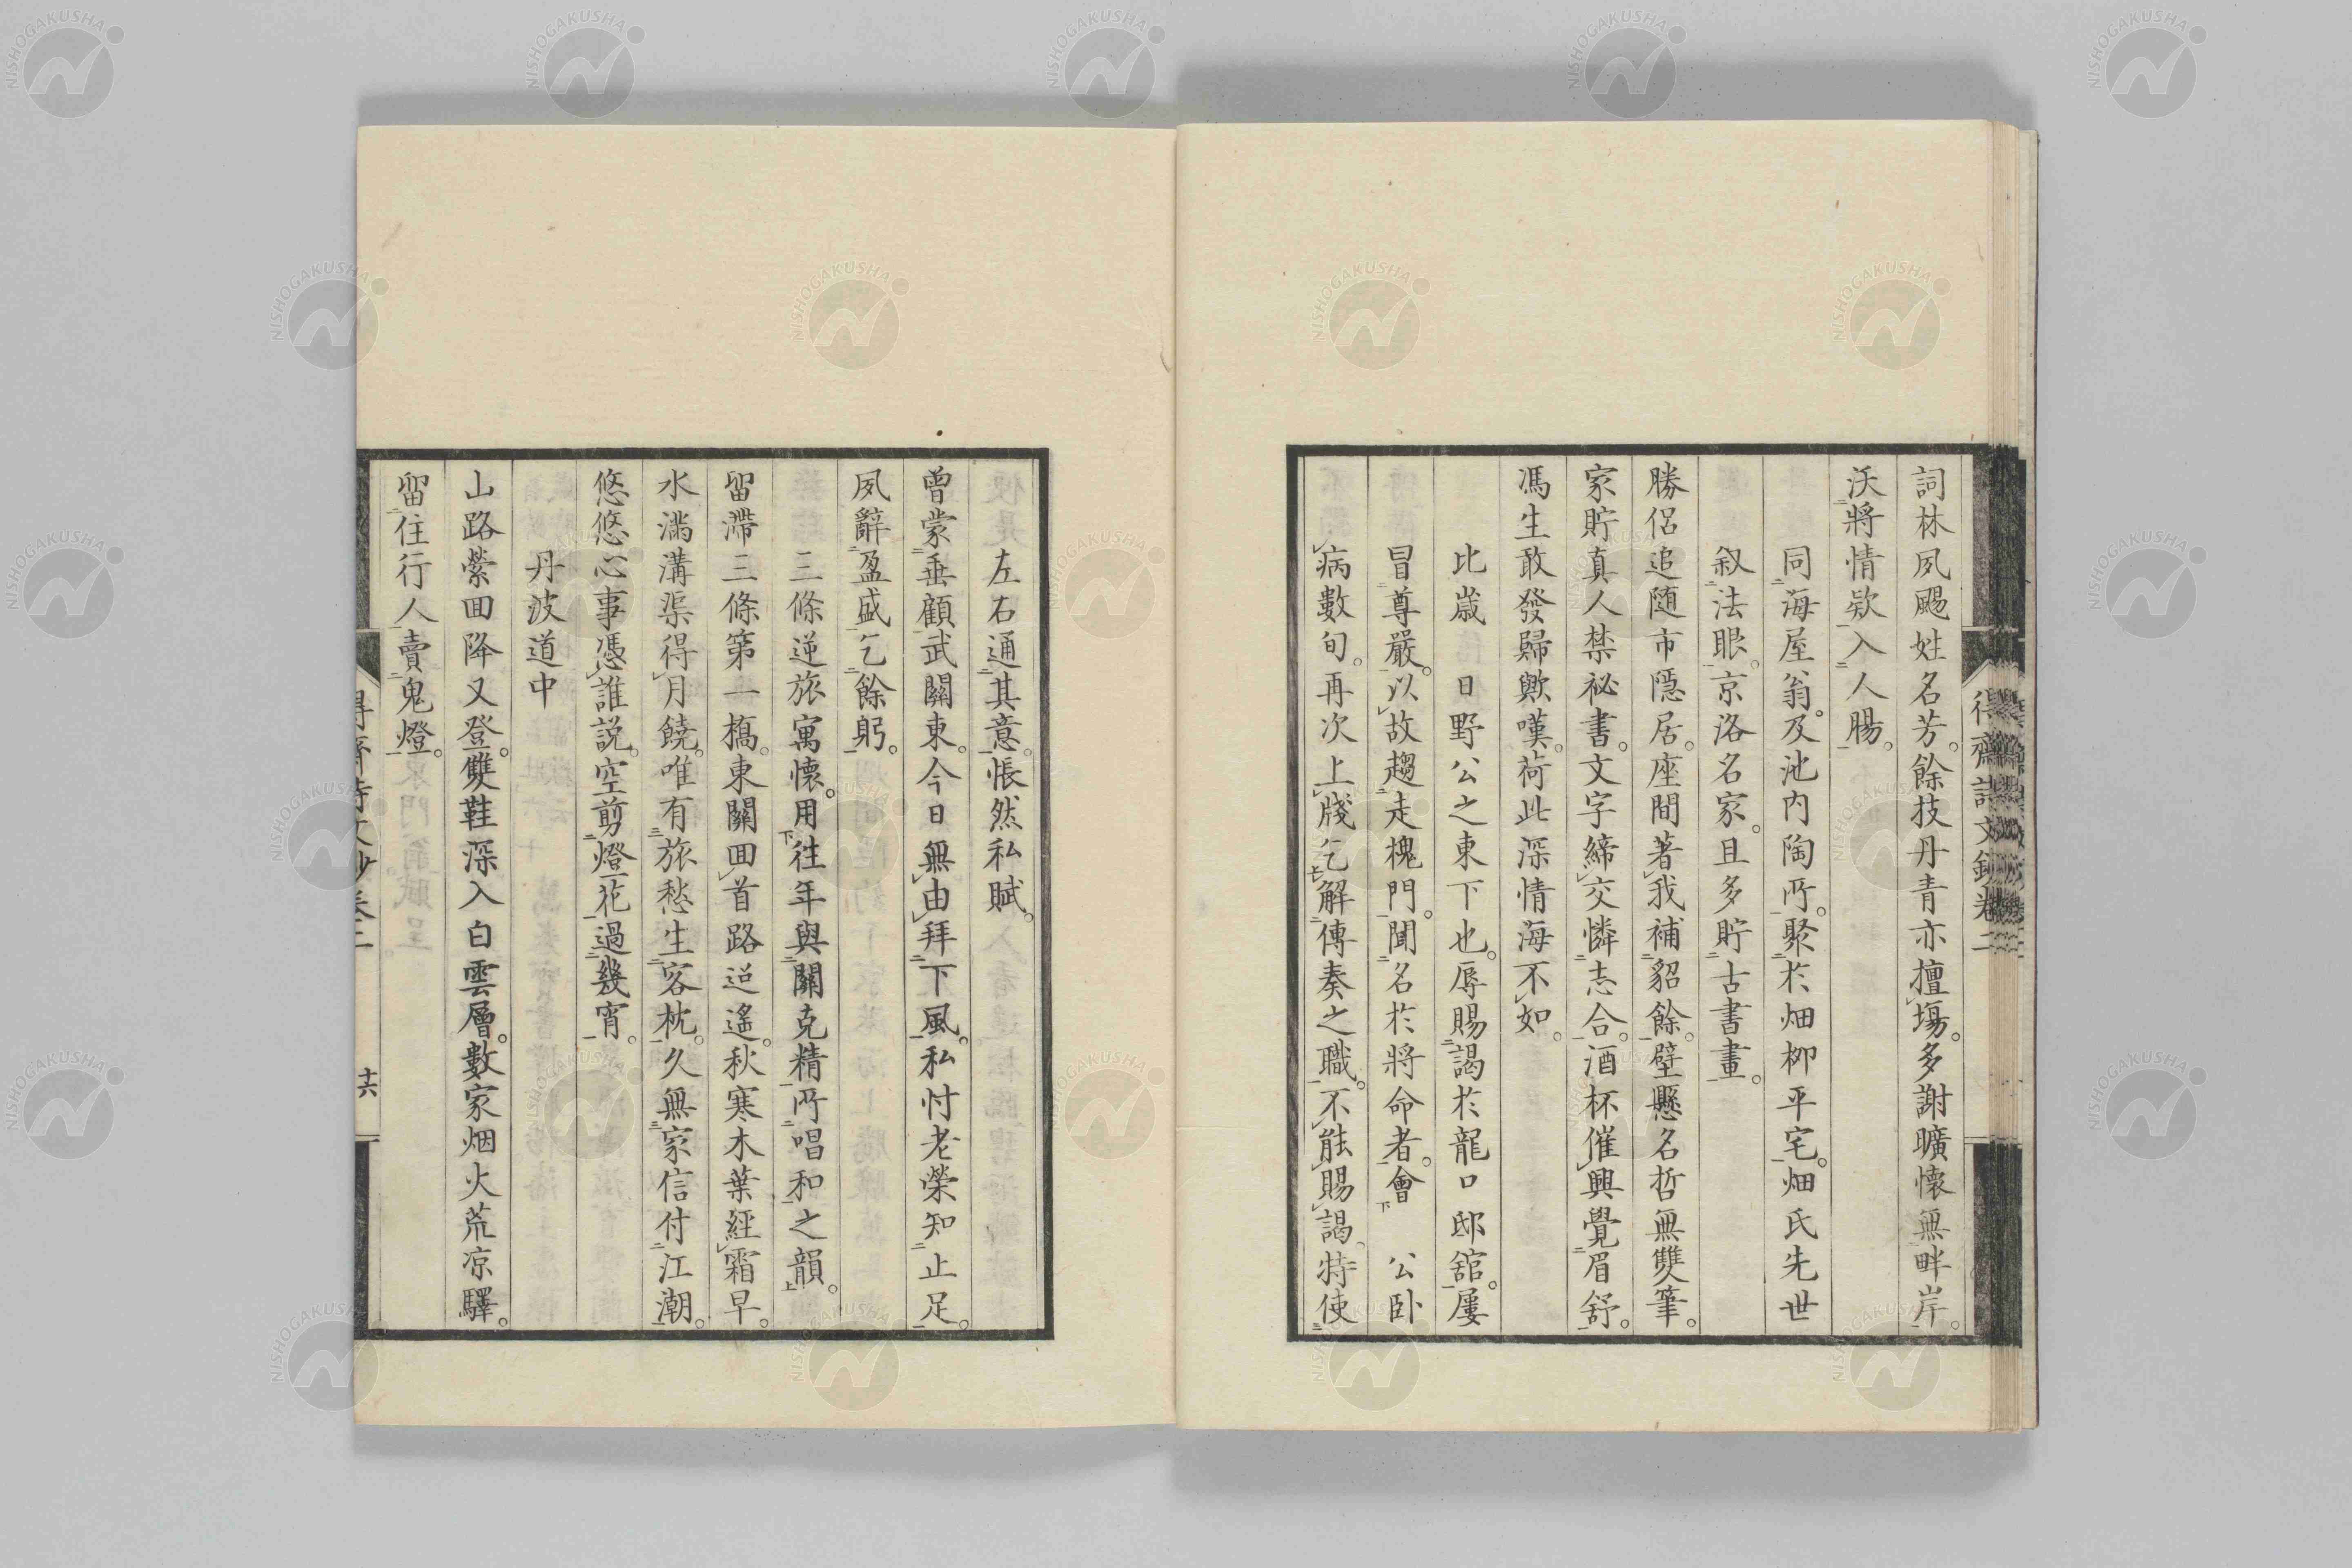 詞林夙颺姓名芳。餘技丹青亦擅塲。多謝曠懷無畔岸。
沃將情欵入人腸。
同海屋翁。及池内陶所。聚於畑柳平宅。畑氏先世
叙法眼。京洛名家。且多貯古書畫。
勝侶追随市隠居。座間著我補貂餘。壁懸名哲無雙筆。
家貯真人禁祕書。文字締交憐志合。酒杯催興覺眉舒。
馮生敢發歸歟嘆。荷此深情海不如。
比歳 日野公之東下也。辱賜謁於龍口邸舘。屢
冒尊嚴。以故趨走槐門。聞名於將命者。會 公卧
病數旬。再次上牋乞解傳奏之職。不能賜謁。特使
左右通其意。悵然私賦。
曾蒙垂顧武關東。今日無由拜下風。私忖老榮知止足。
夙辭盈盛乞餘躬。
三條逆旅寓懷。用往年與關克精所唱和之韻。
留滯三條第一橋。東關回首路迢遙。秋寒木葉經霜早。
水滿溝渠得月饒。唯有旅愁生客枕。久無家信付江潮。
悠悠心事憑誰説。空剪燈花過幾宵。
丹波道中
山路縈回降又登。雙鞋深入白雲層。數家烟火荒凉驛。
留住行人賣鬼燈。
得齋詩文鈔卷二
十六